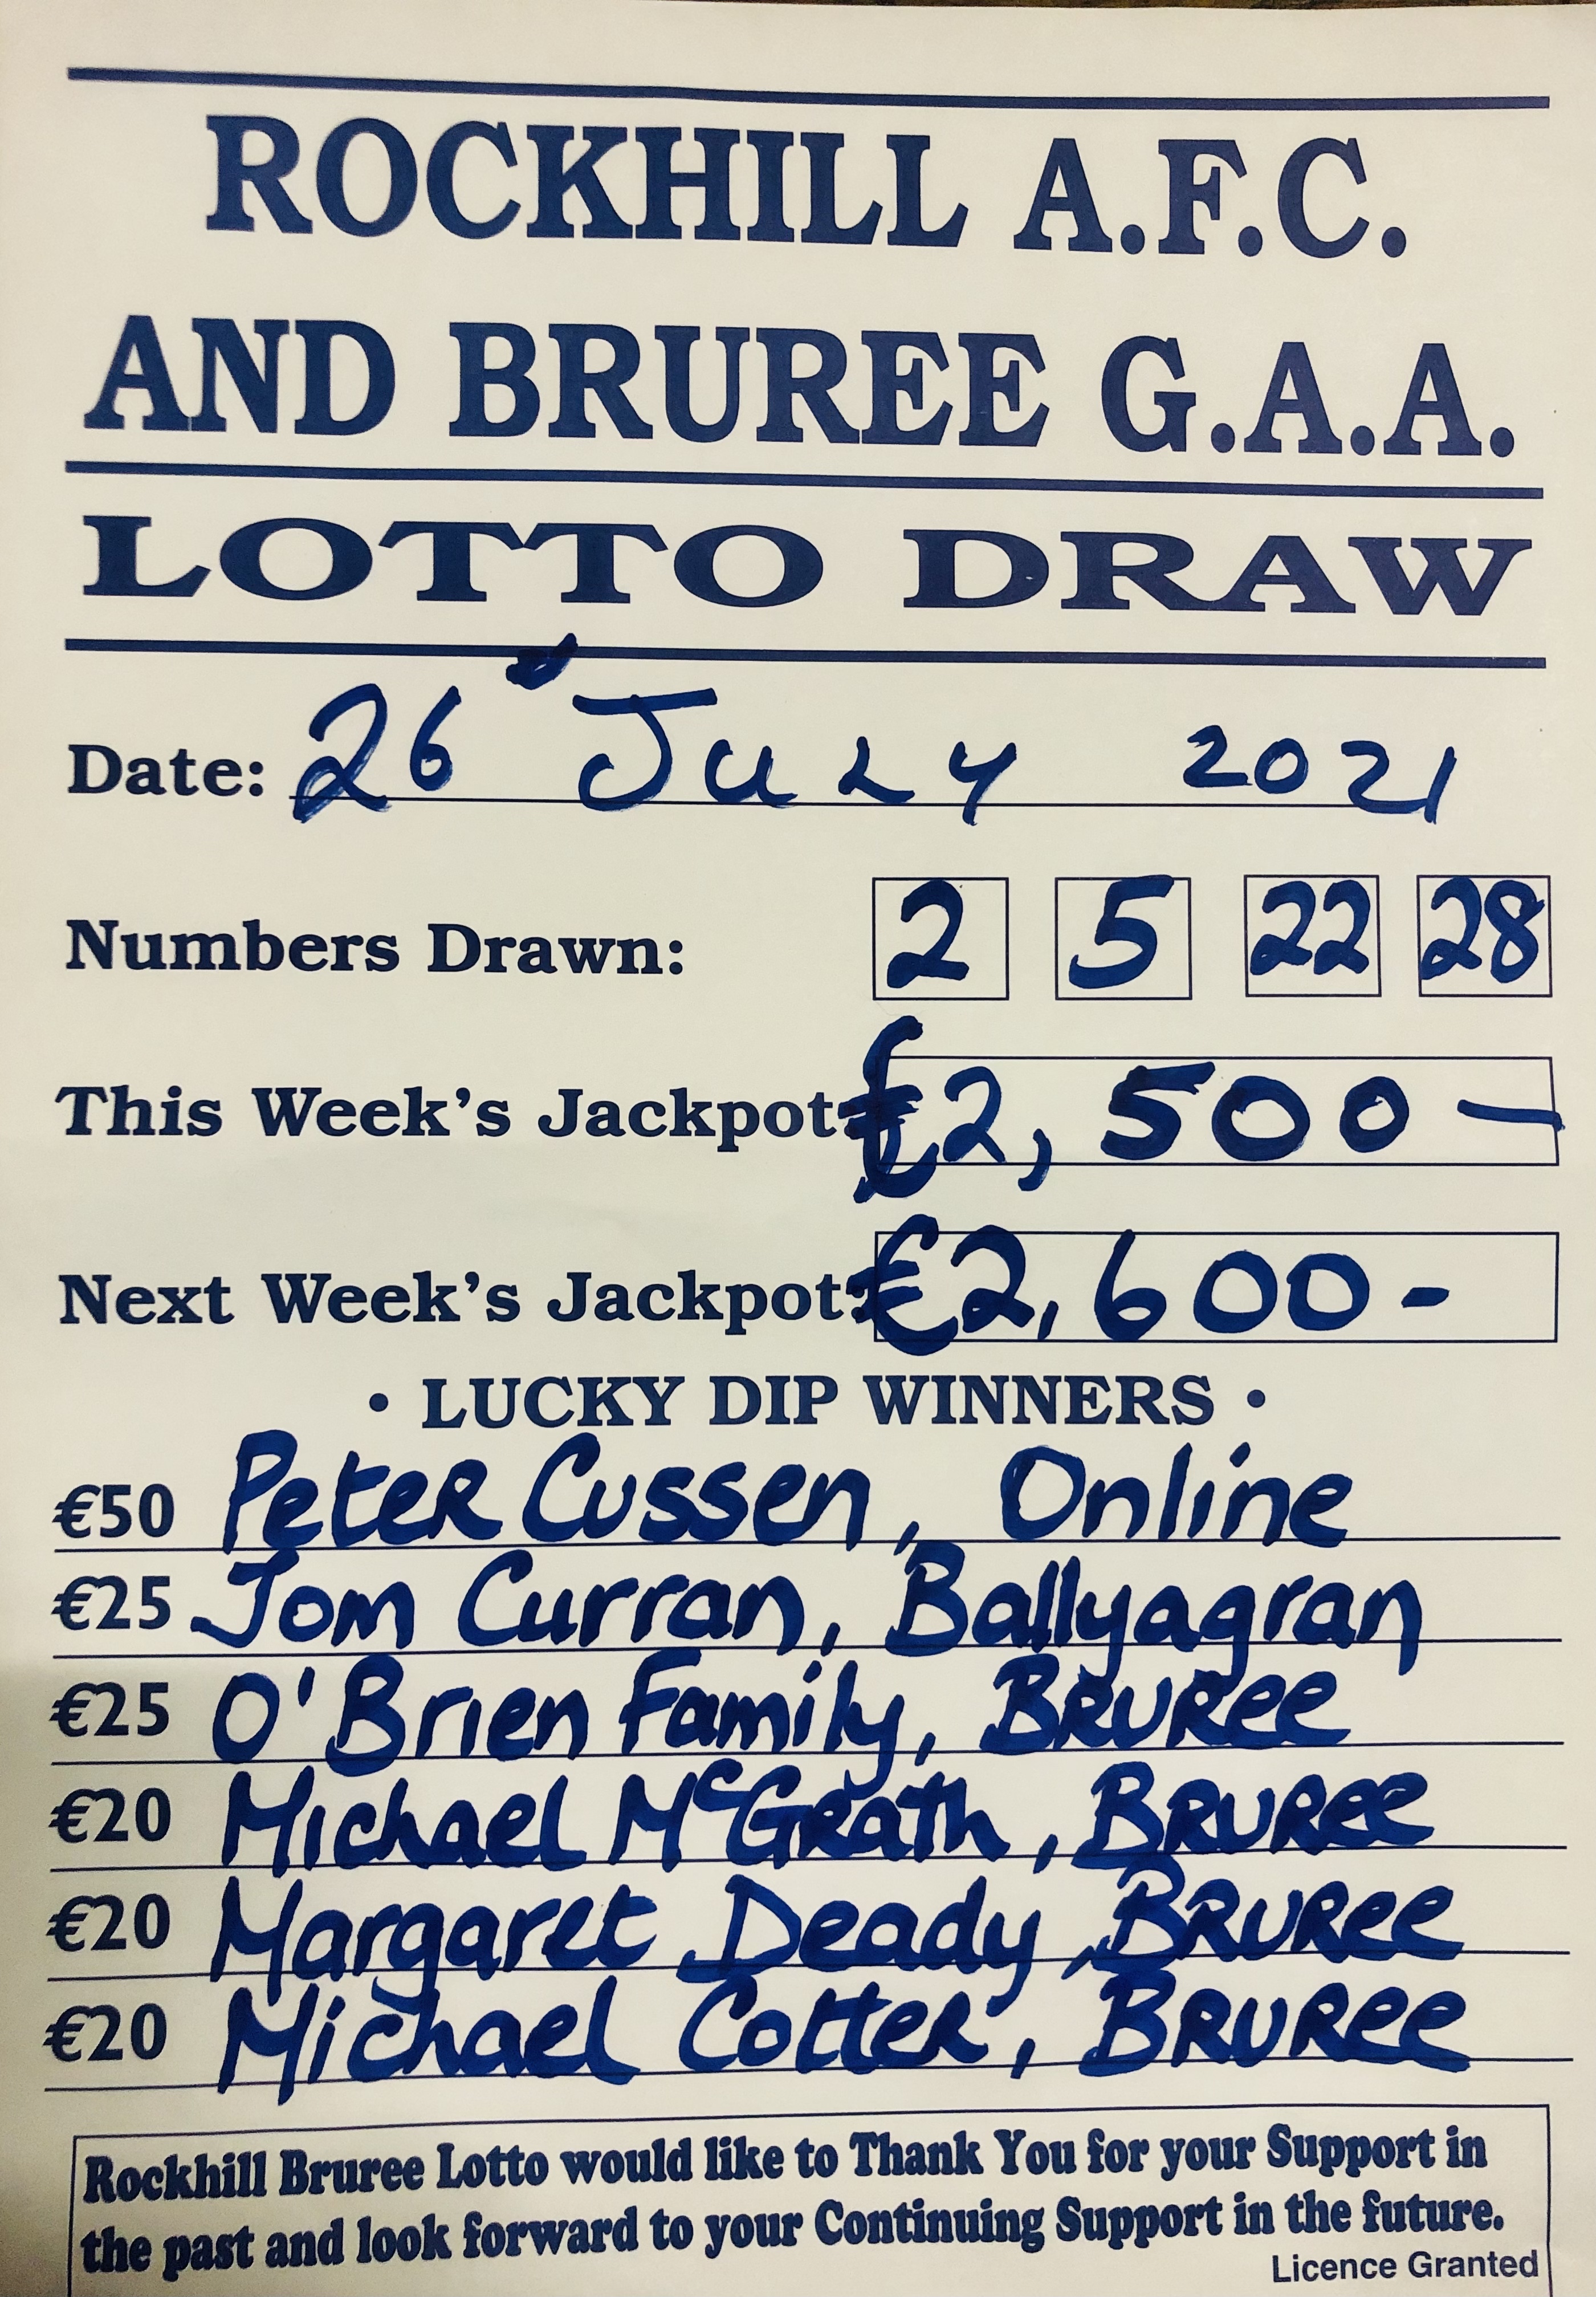 ROCKHILL A.F.C.
AND BRUREE G.A.A.
LOTTO DRAW
Date: 26 JULY 2021
Numbers Drawn: 2 5 22 28
This Week's Jackpot: €2,500-
Next Week's Jackpot: €2,600-
• LUCKY DIP WINNERS •
€50 Peter Cussen, Online
€25 Tom Curran, Ballyagran
€25 O'Brien Family, BRURee
€20 Michael McGrath, BRURee
€20 Margaret Deady, BRURee
€20 Michael Cotter, BRURee
Rockhill Bruree Lotto would like to Thank You for your Support in
the past and look forward to your Continuing Support in the future.
Licence Granted